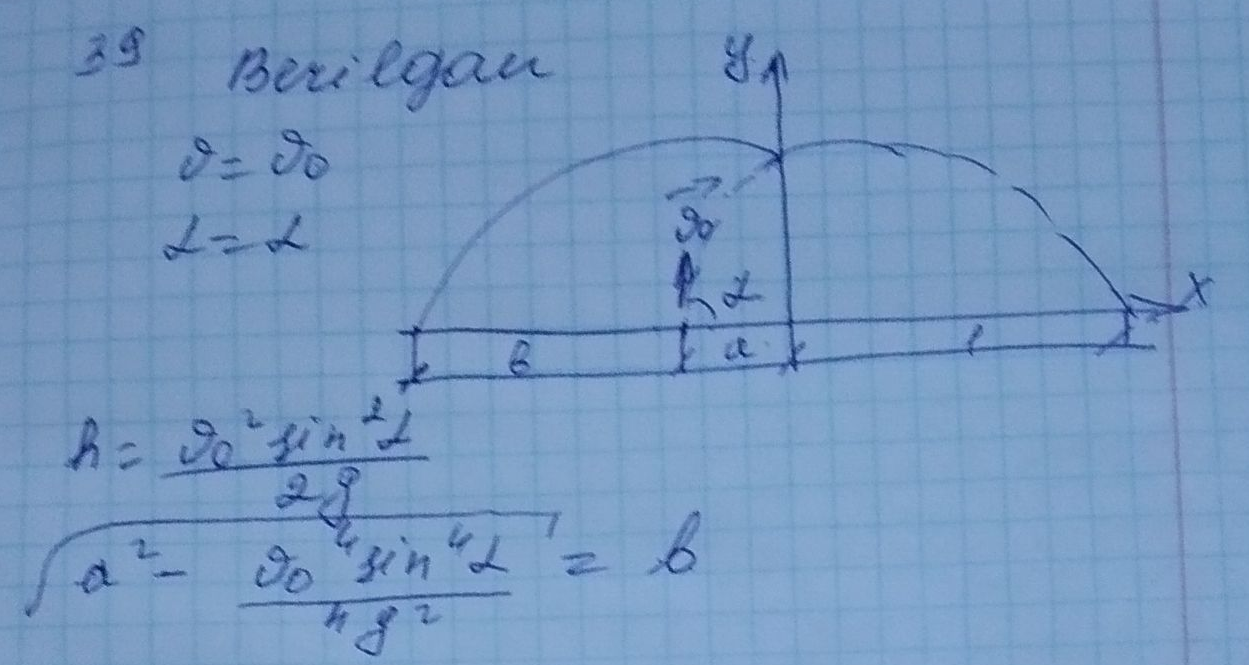 39 Berilgan
ϑ = ϑ₀
α = α
y
ϑ₀
α
x
b
a
h = ϑ₀² sin²α / 2g
√(a² - ϑ₀⁴ sin⁴α / 4g²) = b